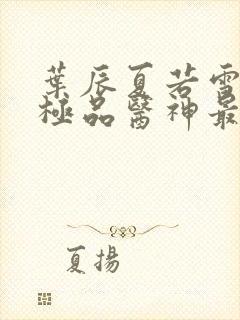 葉辰夏若雪
極品醫神最
夏揚